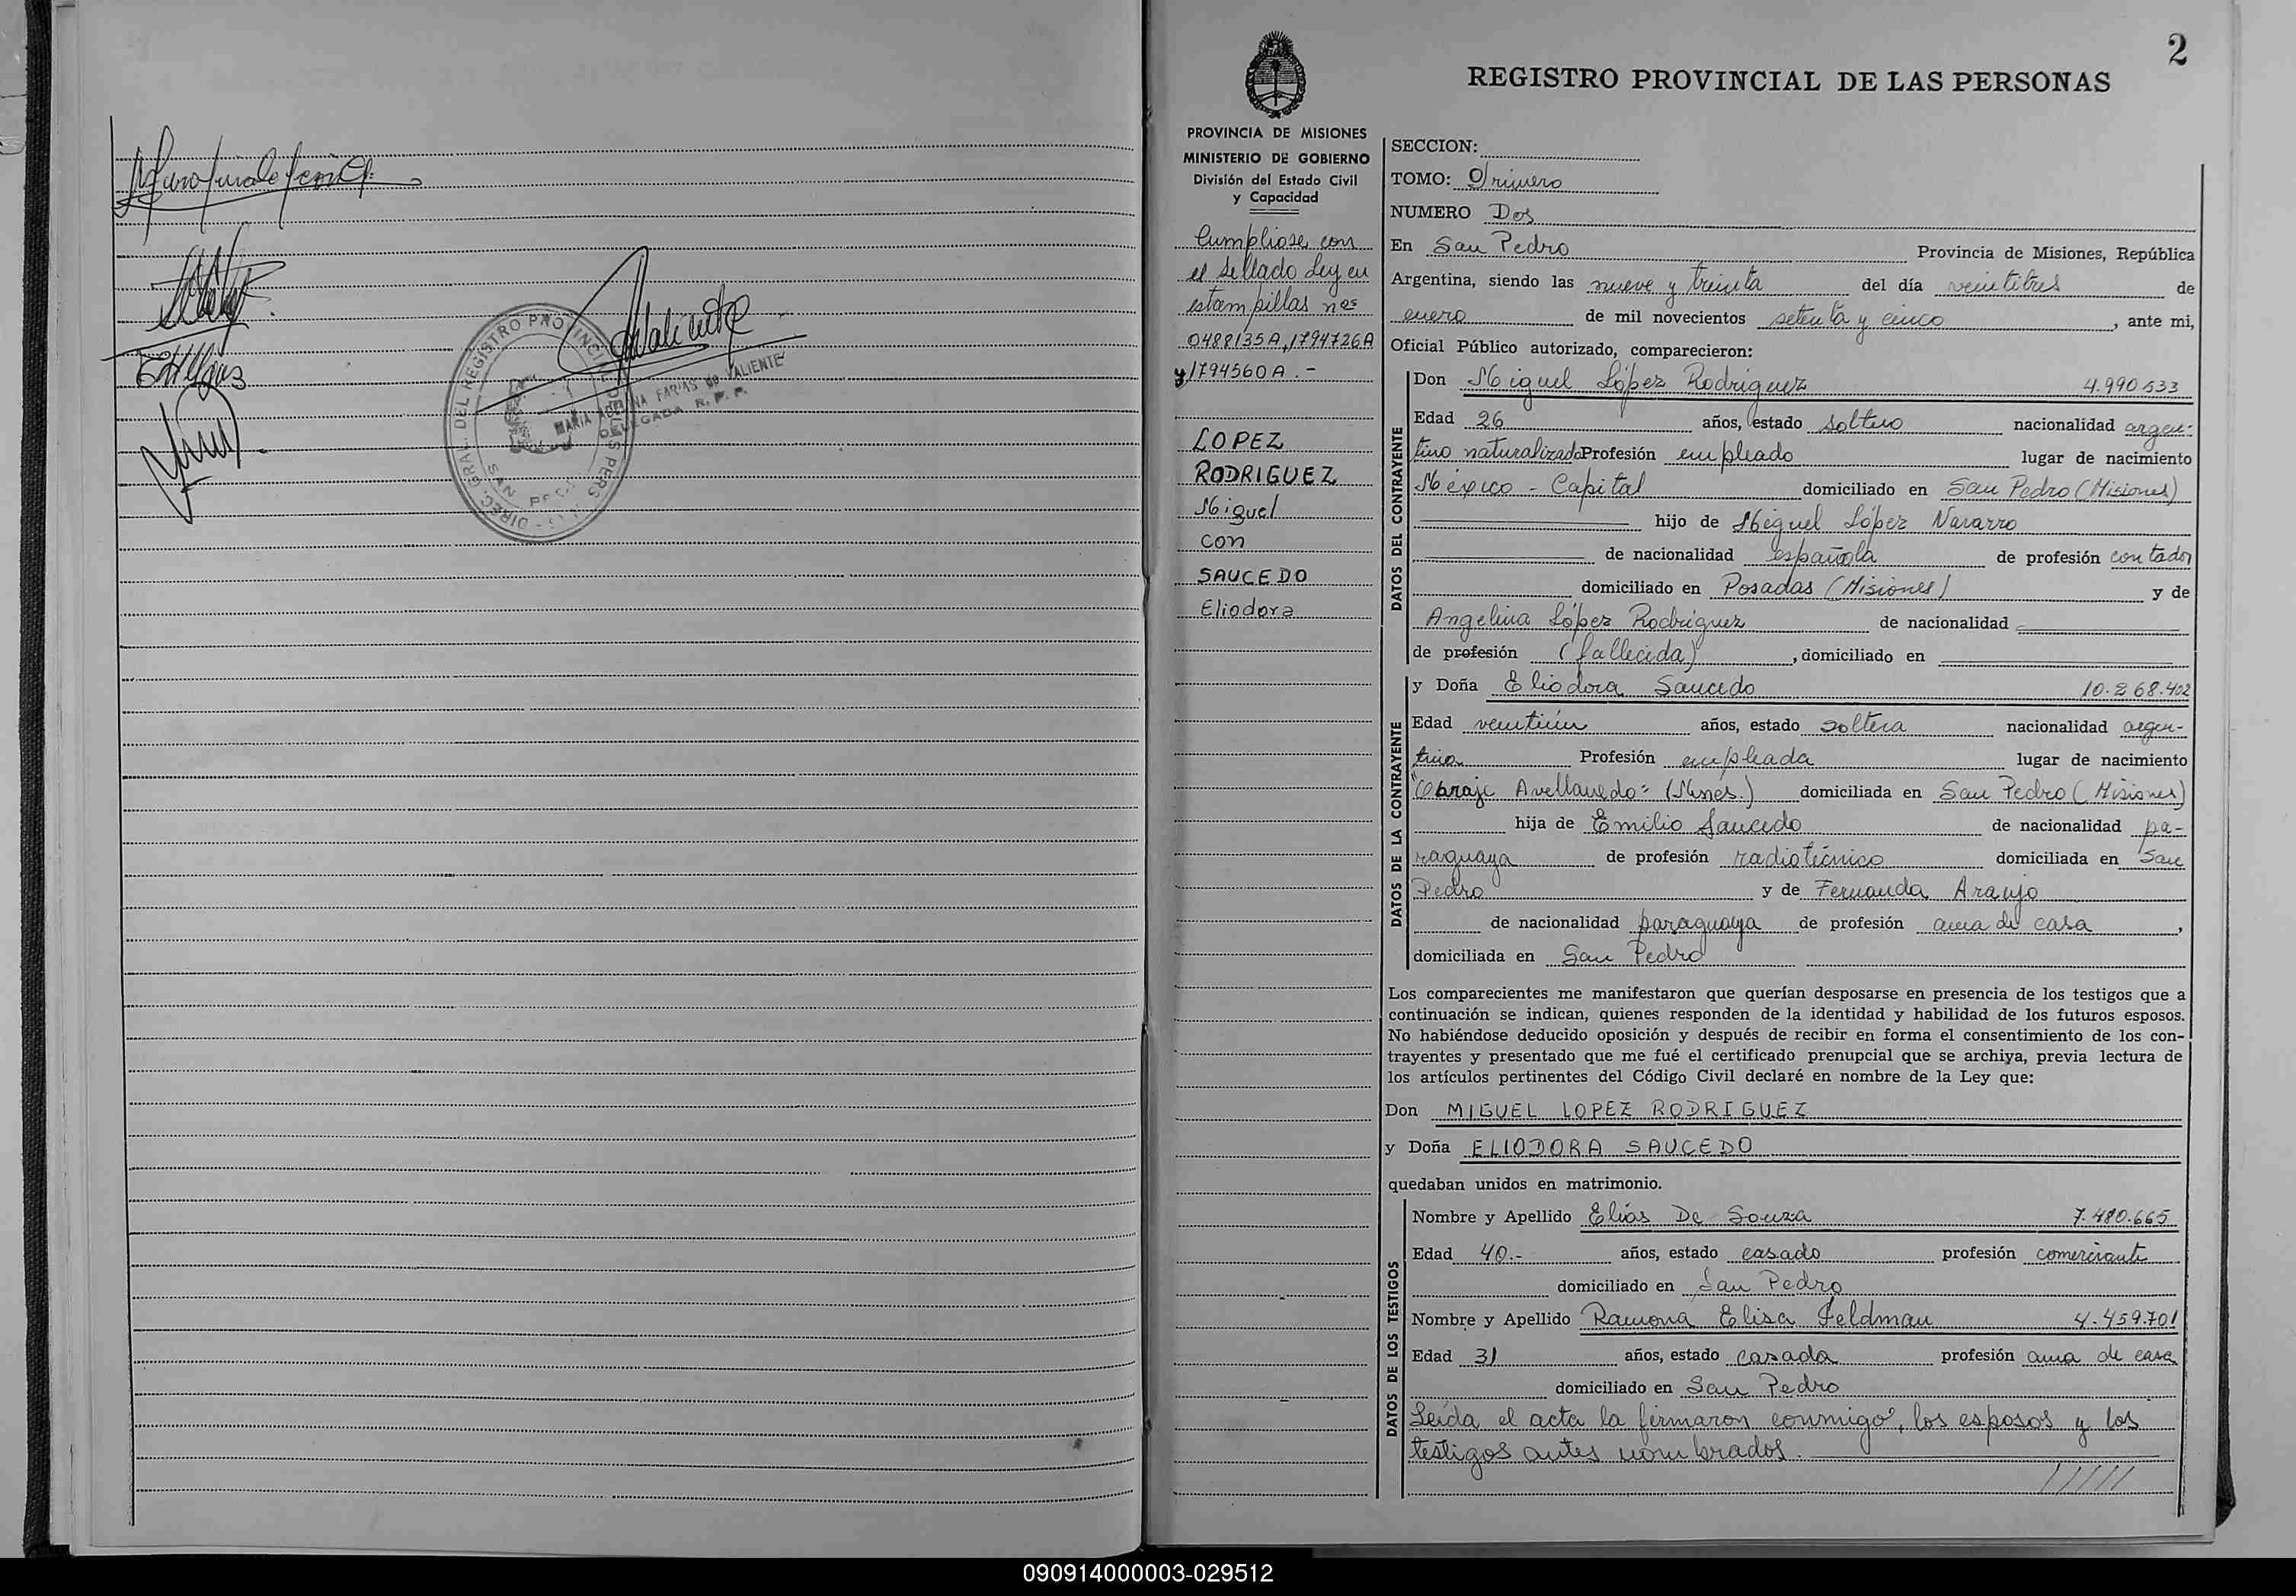 Valiente
DIREC. GRAL. DEL REGISTRO PROVINCIAL DE LAS PERS.
SAN PEDRO
MARIA ADELINA FARIAS de VALIENTE
DELEGADA R. P. P.
2
REGISTRO PROVINCIAL DE LAS PERSONAS
PROVINCIA DE MISIONES
MINISTERIO DE GOBIERNO
División del Estado Civil
y Capacidad
Cumpliose con
el sellado Ley en
estampillas nos
0488135A, 1794726A
y 1794560A.-
LOPEZ
RODRIGUEZ
Miguel
con
SAUCEDO
Eliodora
SECCION:
TOMO: Primero
NUMERO Dos
En San Pedro Provincia de Misiones, República
Argentina, siendo las nueve y treinta del día veintitres de
enero de mil novecientos setenta y cinco, ante mi,
Oficial Público autorizado, comparecieron:
DATOS DEL CONTRAYENTE
Don Miguel López Rodriguez 4.990.533
Edad 26 años, estado soltero nacionalidad argen-
tino naturalizado Profesión empleado lugar de nacimiento
México - Capital domiciliado en San Pedro (Misiones)
hijo de Miguel López Navarro
de nacionalidad española de profesión contador
domiciliado en Posadas (Misiones) y de
Angelina López Rodriguez de nacionalidad
de profesión (fallecida), domiciliado en
DATOS DE LA CONTRAYENTE
y Doña Eliodora Saucedo 10.268.402
Edad veintiún años, estado soltera nacionalidad argen-
tina Profesión empleada lugar de nacimiento
"Obraje Avellanedo" (Mnes.) domiciliada en San Pedro (Misiones)
hija de Emilio Saucedo de nacionalidad pa-
raguaya de profesión radiotécnico domiciliada en San
Pedro y de Fernanda Araujo
de nacionalidad paraguaya de profesión ama de casa,
domiciliada en San Pedro
Los comparecientes me manifestaron que querían desposarse en presencia de los testigos que a
continuación se indican, quienes responden de la identidad y habilidad de los futuros esposos.
No habiéndose deducido oposición y después de recibir en forma el consentimiento de los con-
trayentes y presentado que me fué el certificado prenupcial que se archiya, previa lectura de
los artículos pertinentes del Código Civil declaré en nombre de la Ley que:
Don MIGUEL LOPEZ RODRIGUEZ
y Doña ELIODORA SAUCEDO
quedaban unidos en matrimonio.
DATOS DE LOS TESTIGOS
Nombre y Apellido Elías De Souza 7.480.665
Edad 40.- años, estado casado profesión comerciante
domiciliado en San Pedro
Nombre y Apellido Ramona Elisa Feldman 4.459.701
Edad 31 años, estado casada profesión ama de casa
domiciliado en San Pedro
Leída el acta la firmaron conmigo, los esposos y los
testigos antes nombrados.
090914000003-029512